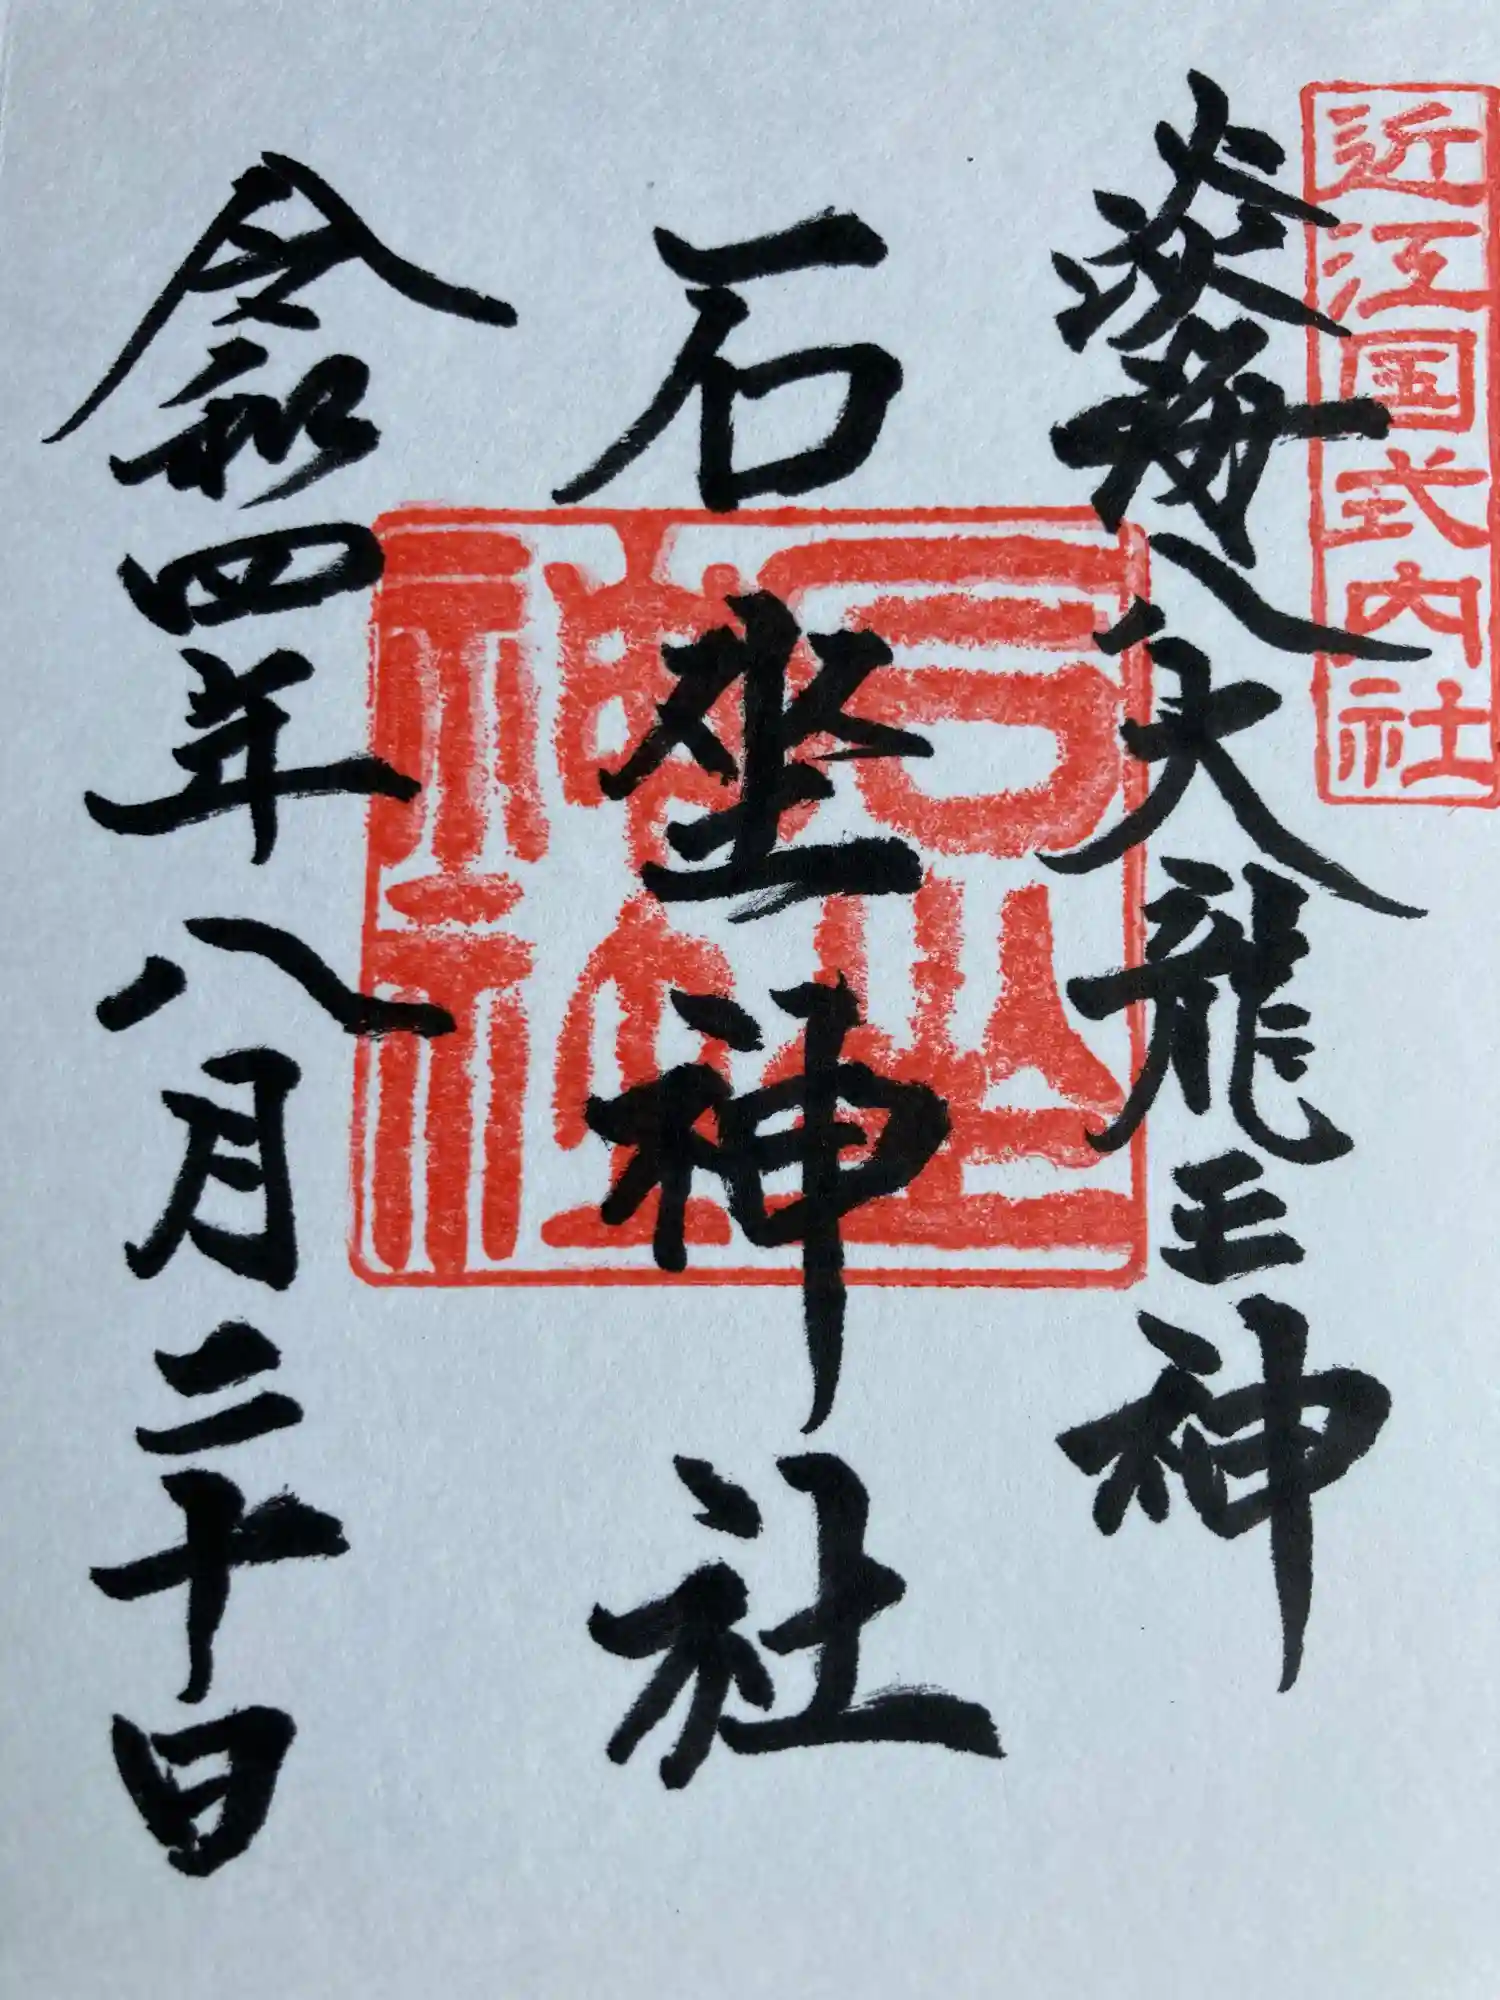 近江国式内社
淡海之大龍王神
石坐神社
石坐神社
令和四年八月二十日